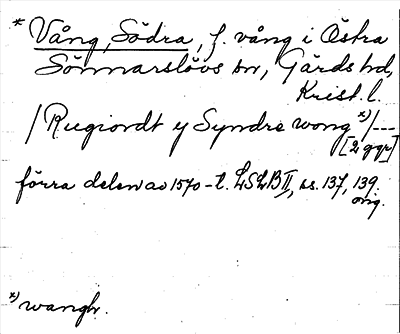 * Vång, Södra, f. vång i Östra
Sönnarslövs sn, Gärds hd,
Krist. l.
/Rugiordt y Syndre wong x)/---
[2 ggr]
förra delen av 1570-t. LSLB II, ss. 137, 139.
orig.
x) wangh.